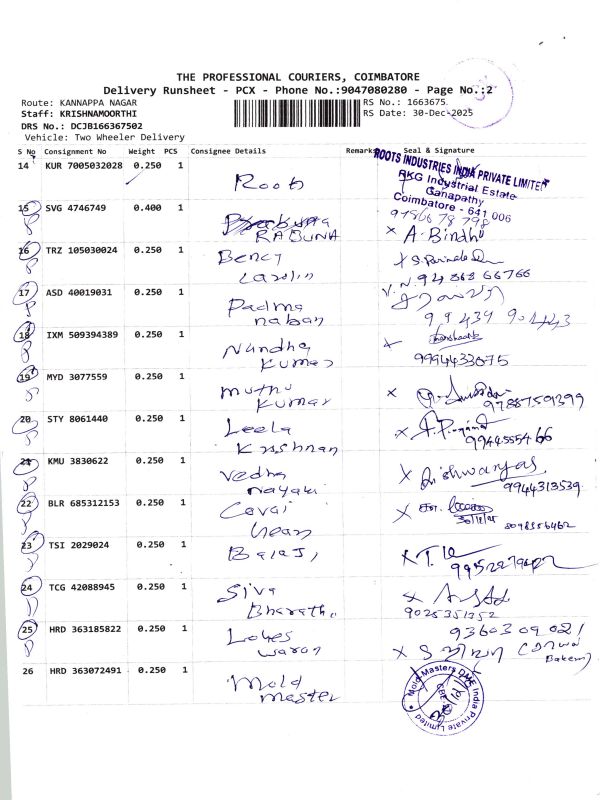 THE PROFESSIONAL COURIERS, COIMBATORE
Delivery Runsheet - PCX - Phone No.:9047080280 - Page No.:2
Route: KANNAPPA NAGAR RS No.: 1663675
Staff: KRISHNAMOORTHI RS Date: 30-Dec-2025
DRS No.: DCJB166367502
Vehicle: Two Wheeler Delivery
S No Consignment No Weight PCS Consignee Details Remarks Seal & Signature
14 KUR 7005032028 0.250 1 Roots
ROOTS INDUSTRIES INDIA PRIVATE LIMITED
RKG Industrial Estate
Ganapathy
Coimbatore - 641 006
15 SVG 4746749 0.400 1
RABUNA x A. Bindhu
16 TRZ 105030024 0.250 1 Bency
94863 66766
17 ASD 40019031 0.250 1 Padma
naban
18 IXM 509394389 0.250 1 Nandha
Kumar 9994433075
19 MYD 3077559 0.250 1 muthu
Kumar 97887591399
20 STY 8061440 0.250 1 Leela
Krishnan 9944555466
21 KMU 3830622 0.250 1 Vedha
nayaki 9944313539
22 BLR 685312153 0.250 1 Covai
23 TSI 2029024 0.250 1 Balaji
24 TCG 42088945 0.250 1 Siva
Bharathi 9025351352
25 HRD 363185822 0.250 1 Lokes
waran 9360309021
Bakery
26 HRD 363072491 0.250 1 Mold
master
Mold Masters DME India Private Limited
CBE